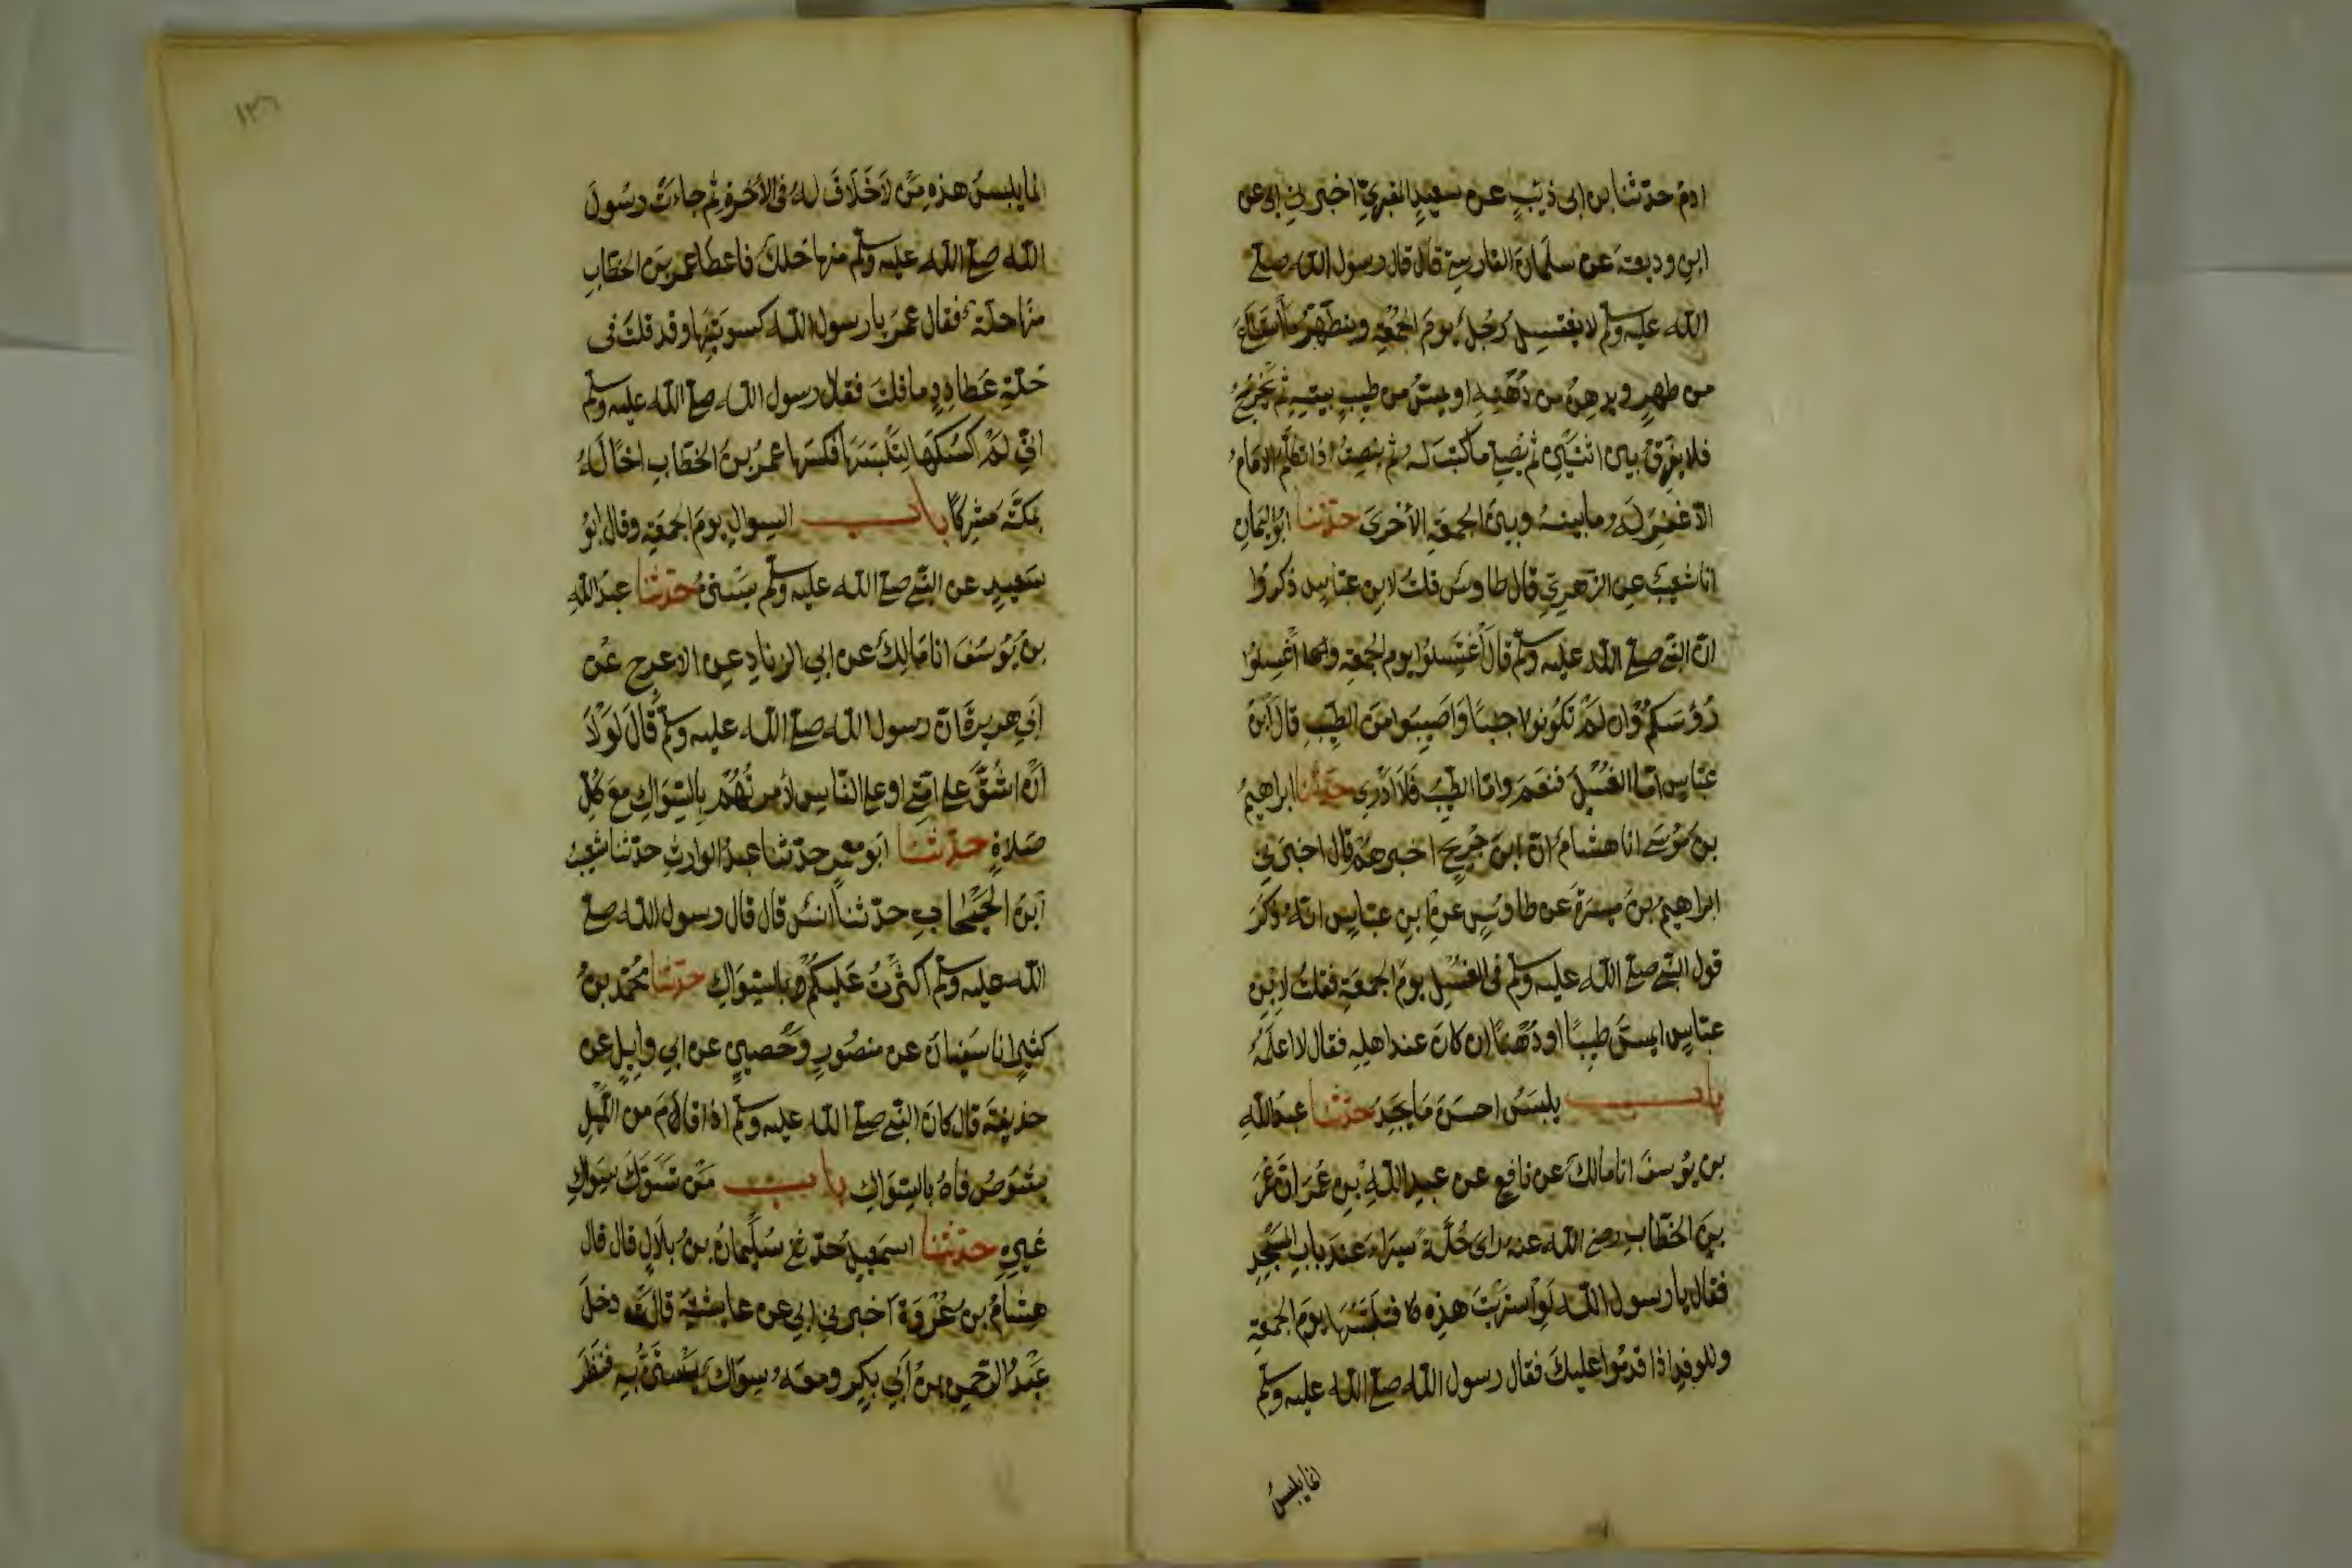 ادم حدثنا بن ابى ذئب عن سعيد المقبري اخبرني ابى عن
ابن وديعة عن سلمان الفارسي قال قال رسول الله صلى
الله عليه وسلم لا يغتسل رجل يوم الجمعة ويتطهر ما استطاع
من طهر ويدهن من دهنه او يمس من طيب بيته ثم يخرج
فلا يفرق بين اثنين ثم يصلي ما كتب له ثم ينصت اذا تكلم الامام
الا غفر له ما بينه وبين الجمعة الأخرى حدثنا ابو اليمان
انا شعيب عن الزهري قال طاوس قلت لابن عباس ذكروا
ان النبي صلى الله عليه وسلم قال اغتسلوا يوم الجمعة واغسلوا
رؤسكم وان لم تكونوا جنبا واصيبوا من الطيب قال ابن
عباس اما الغسل فنعم واما الطيب فلا ادري حدثنا ابراهيم
بن موسى انا هشام ان ابن جريج اخبرهم قال اخبرني
ابراهيم بن ميسرة عن طاوس عن ابن عباس انه ذكر
قول النبي صلى الله عليه وسلم في الغسل يوم الجمعة فقلت لابن
عباس ايمس طيبا او دهنا ان كان عند اهله فقال لا اعلمه
باب يلبس احسن ما يجد حدثنا عبد الله
بن يوسف انا مالك عن نافع عن عبد الله بن عمر ان عمر
بن الخطاب رضي الله عنه راى حلة سيراء عند باب المسجد
فقال يا رسول الله لو اشتريت هذه فتلبسها يوم الجمعة
وللوفد اذا قدموا عليك فقال رسول الله صلى الله عليه وسلم
انما يلبس
١٢٦
انما يلبس هذه من لا خلاف له في الأخرة ثم جاءت رسول
الله صلى الله عليه وسلم منها حلل فاعطا عمر بن الخطاب
منها حلة فقال عمر يا رسول الله كسوتنيها وقد قلت في
حلة عطارد ما قلت فقال رسول الله صلى الله عليه وسلم
اني لم اكسكها لتلبسها فكسها عمر بن الخطاب اخا له
بمكة مشركا باب السواك يوم الجمعة وقال ابو
سعيد عن النبي صلى الله عليه وسلم يستن حدثنا عبد الله
بن يوسف انا مالك عن ابي الزناد عن الاعرج عن
ابي هريرة ان رسول الله صلى الله عليه وسلم قال لولا
ان اشق على امتي او على الناس لأمرتهم بالسواك مع كل
صلاة حدثنا ابو معمر حدثنا عبد الوارث حدثنا شعيب
ابن الحبحاب حدثنا انس قال قال رسول الله صلى
الله عليه وسلم اكثرت عليكم بالسواك حدثنا محمد بن
كثير انا سفيان عن منصور وحصين عن ابي وايل عن
حذيفة قال كان النبي صلى الله عليه وسلم اذا قام من الليل
يشوص فاه بالسواك باب من تسوك بسواك
غيره حدثنا اسمعيل حدثني سليمان بن بلال قال قال
هشام بن عروة اخبرني ابي عن عايشة قالت دخل
عبد الرحمن بن أبي بكر ومعه سواك يستن به فنظر